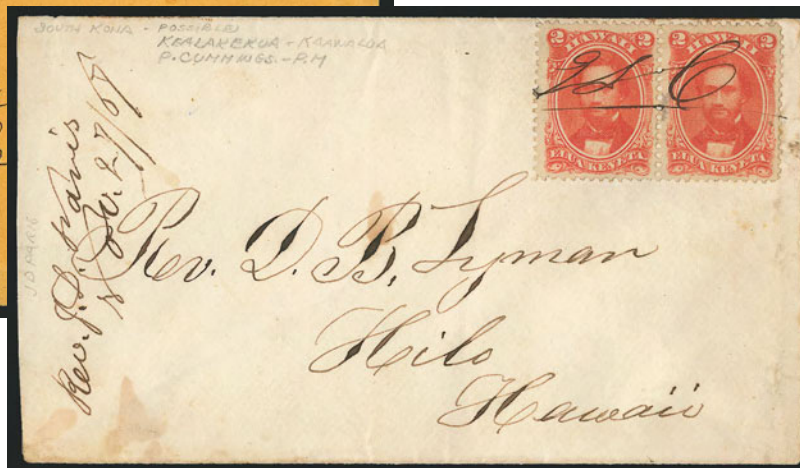 SOUTH KONA - POSSIBLY
KEALAKEKUA - KAAWALOA
P. CUMMINGS. - P.M
2 HAWAII 2
ELUA KENETA
2 HAWAII 2
ELUA KENETA
Rev. J. D. Paris
27/67
J D PARIS
Rev. D. B. Lyman
Hilo
Hawaii